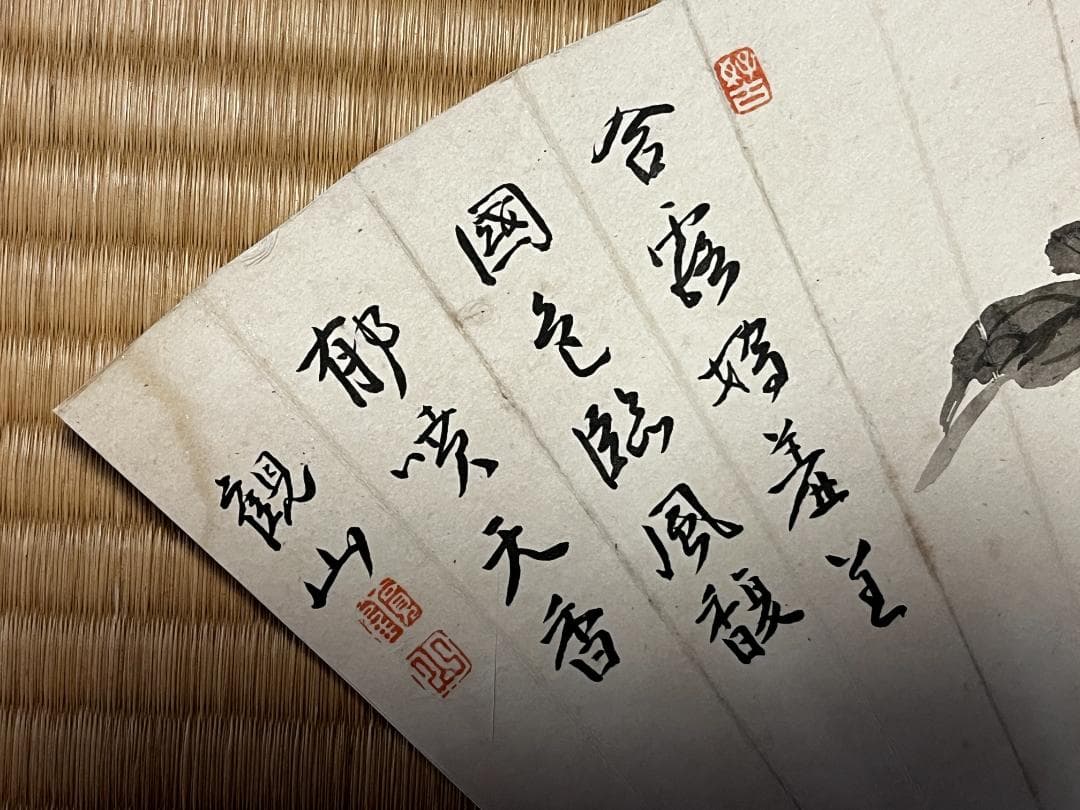 含露嬌羞呈
國色臨風馥
郁噴天香
觀山